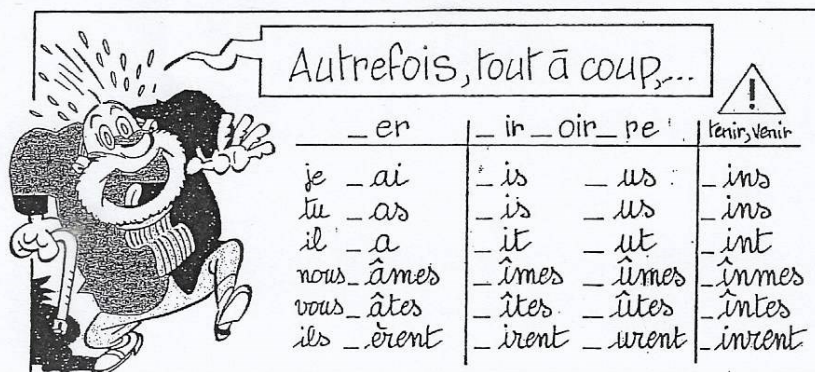 Autrefois, tout à coup,...
!
_er _ir_oir_re tenir, venir
je _ai _is _us _ins
tu _as _is _us _ins
il _a _it _ut _int
nous_âmes _îmes _ûmes _înmes
vous_âtes _îtes _ûtes _întes
ils _èrent _irent _urent _inrent